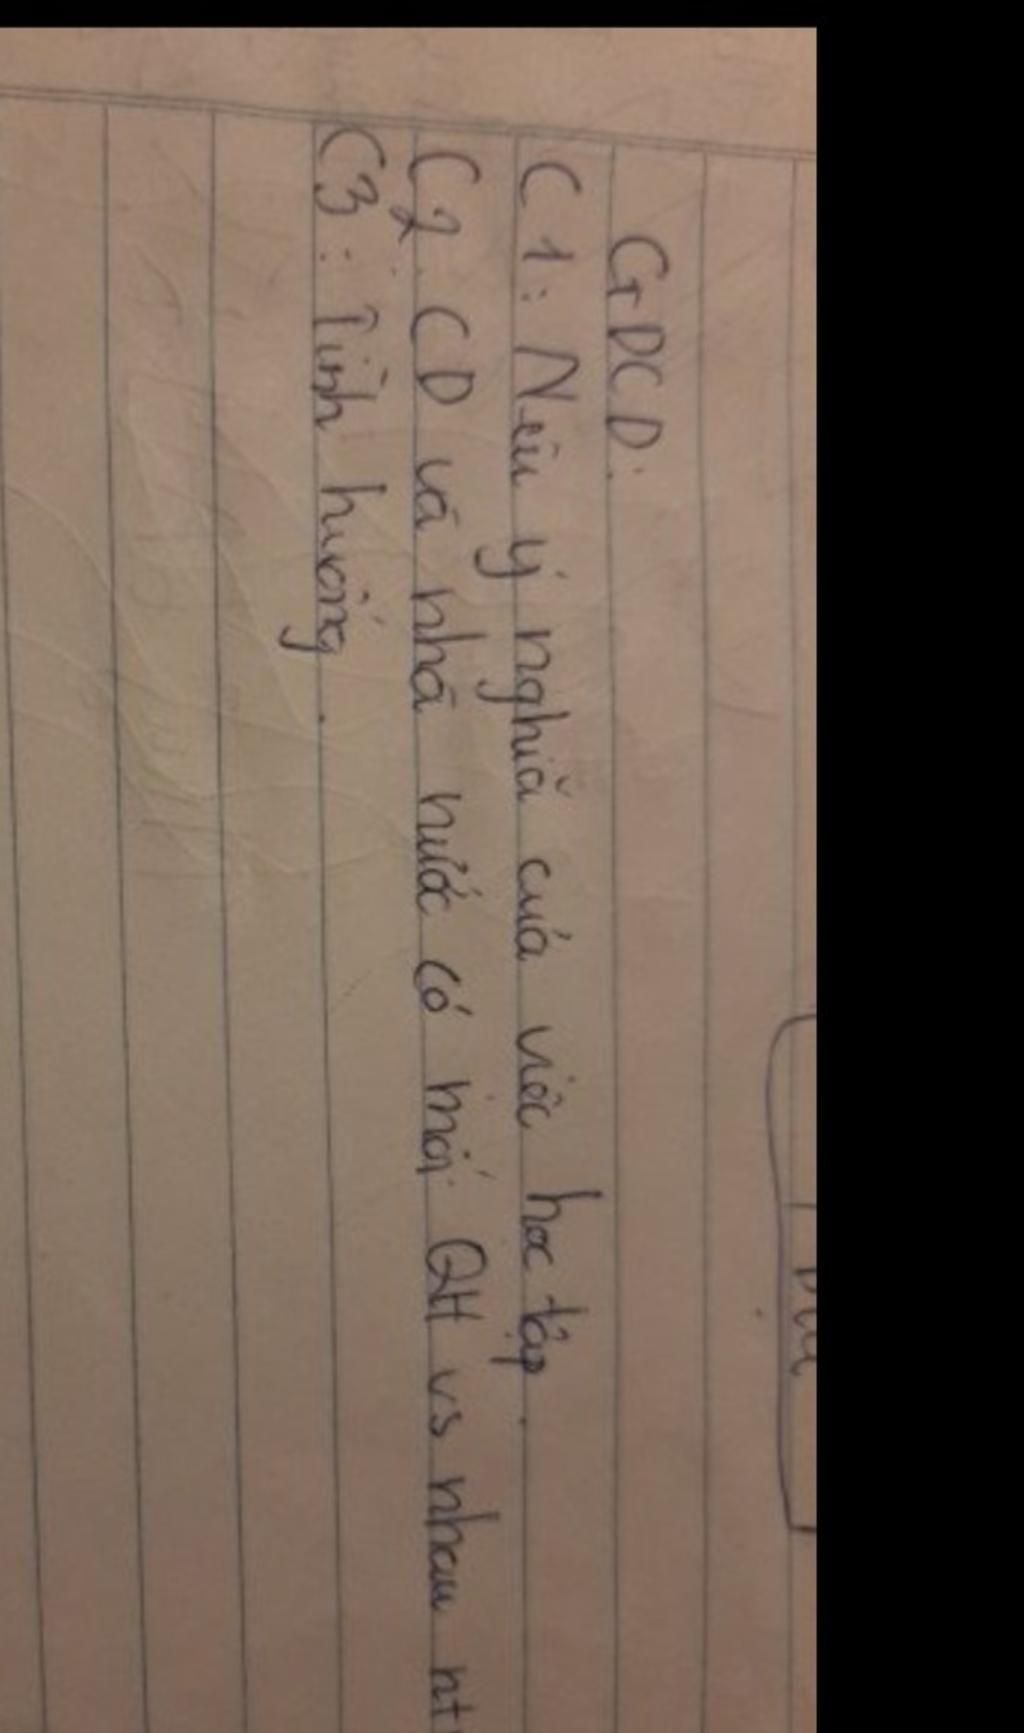 GDCD:
C1: Nêu ý nghĩa của việc học tập.
C2: CD và nhà nước có mối QH vs nhau
C3: Tình huống.